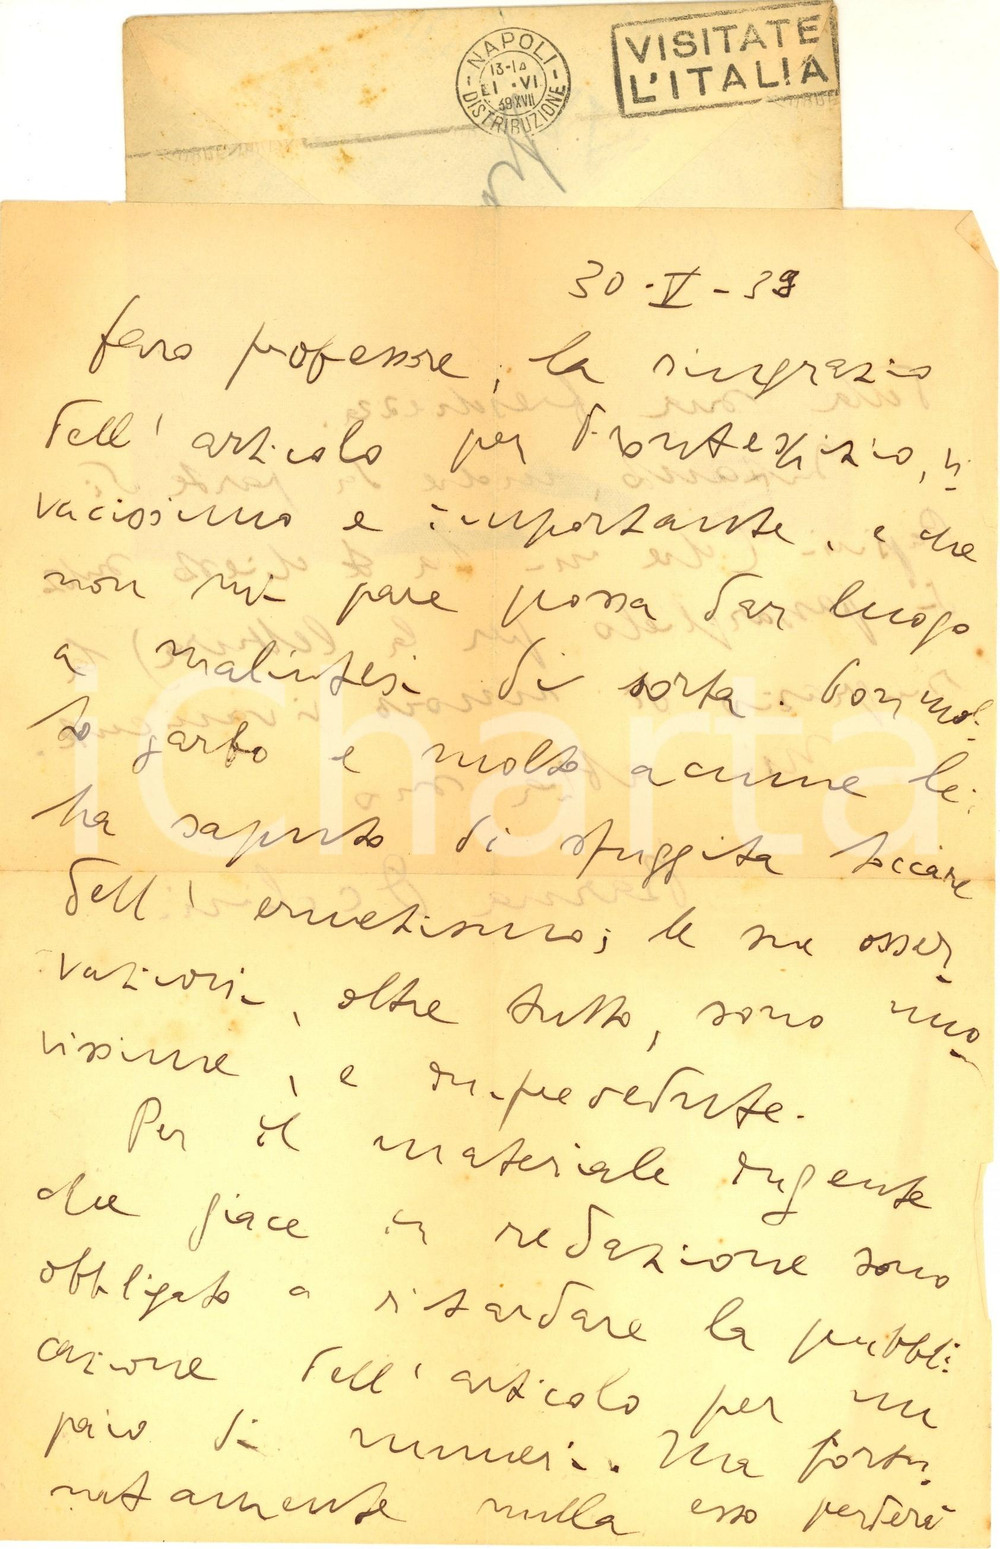 NAPOLI
13-14
1 · VI
39 XVII
DISTRIBUZIONE
VISITATE
L'ITALIA
30 - V - 39
Caro professore, la ringrazio
dell'articolo per Frontespizio, vi-
vacissimo e importante, e che
non mi pare possa dar luogo
a malintesi di sorta. Con mol-
to garbo e molto acume lei
ha saputo di sfuggita toccare
dell'ermetismo; le sue osser-
vazioni, oltre tutto, sono nuo-
vissime, e impredute.
Per il materiale urgente
che giace in redazione sono
obbligato a ritardare la pubbli-
cazione dell'articolo per un
paio di numeri. Ma fortu-
natamente nulla esso perderà
iCharta